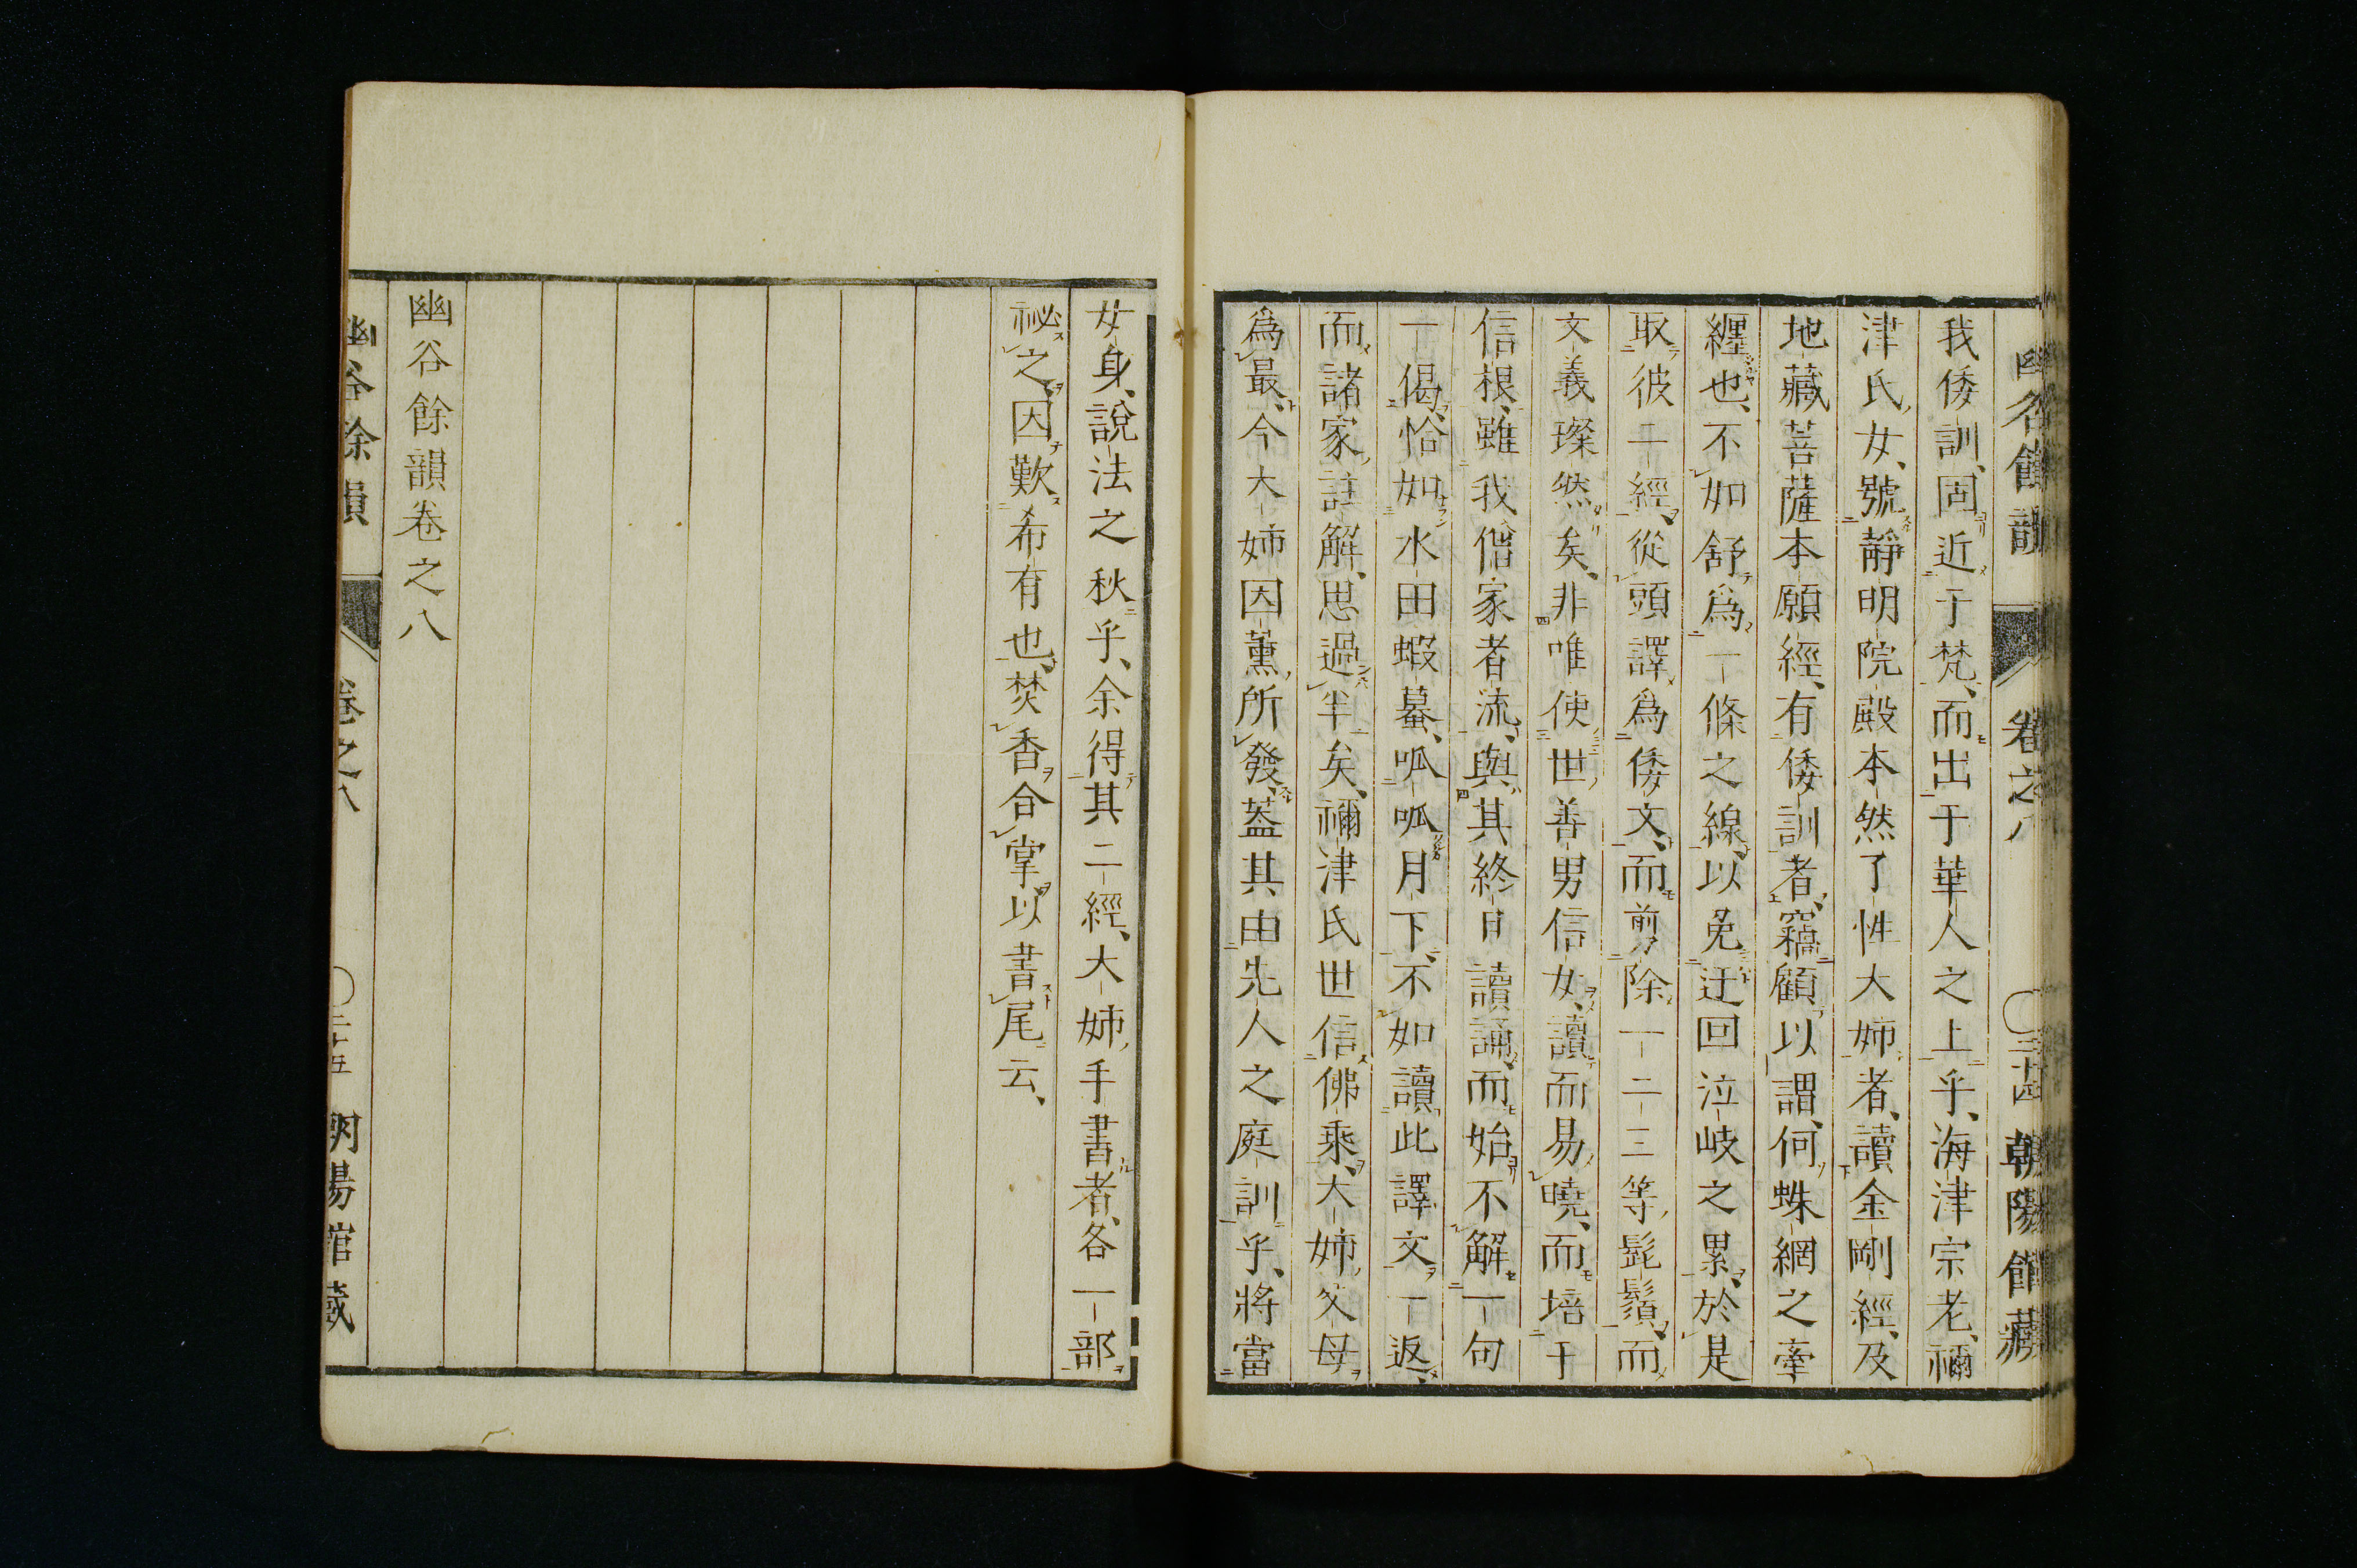 幽谷餘韻 卷之八 〇三十四 朝陽館藏
我倭訓、固近于梵、而出于華人之上乎、海津宗老、禰
津氏女、號靜明院殿本然了性大姉者、讀金剛經、及
地藏菩薩本願經、有倭訓者、竊顧以謂、何蛛網之牽
纒也、不如舒爲一條之線、以免迂回泣岐之累、於是
取彼二經、從頭譯爲倭文、而剪除一二三等髭鬚、而
文義璨然矣、非唯使世善男信女、讀而易曉、而培于
信根、雖我僧家者流、與其終日讀誦、而始不解一句
一偈、恰如水田蝦蟇、呱呱月下、不如讀此譯文一返、
而諸家註解、思過半矣、禰津氏世信佛乘、大姉父母
爲最、今大姉因薫所發、葢其由先人之庭訓乎、將當
女身、說法之秋乎、余得其二經、大姉手書者、各一部
祕之、因歎希有也、焚香合掌、以書尾云、
幽谷餘韻卷之八
幽谷餘韻 卷之八 〇三十五 朝陽館藏